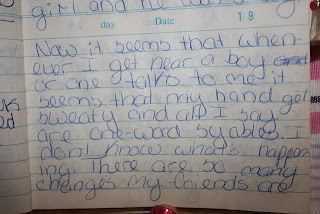 girl and he was a boy
day Date 19
Now it seems that when-
ever I get near a boy and
or one talks to me it
seems that my hand got
sweaty and all I say
are one-word syables. I
don't know what's happen
ing. There are so many
changes my friends are